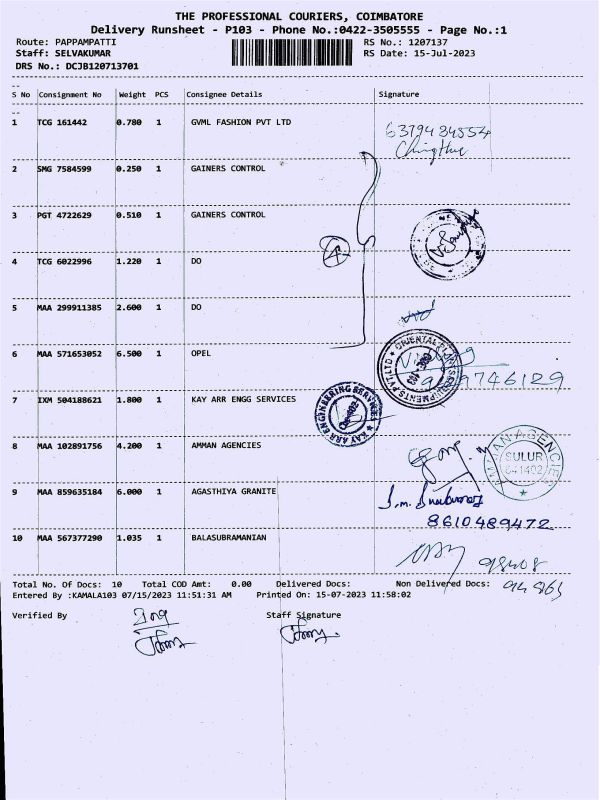 THE PROFESSIONAL COURIERS, COIMBATORE
Delivery Runsheet - P103 - Phone No.:0422-3505555 - Page No.:1
Route: PAPPAMPATTI RS No.: 1207137
Staff: SELVAKUMAR RS Date: 15-Jul-2023
DRS No.: DCJB120713701
S No Consignment No Weight PCS Consignee Details Signature
1 TCG 161442 0.780 1 GVML FASHION PVT LTD
2 SMG 7584599 0.250 1 GAINERS CONTROL
3 PGT 4722629 0.510 1 GAINERS CONTROL
4 TCG 6022996 1.220 1 DO
5 MAA 299911385 2.600 1 DO
6 MAA 571653052 6.500 1 OPEL
ORIENTAL
7 IXM 504188621 1.800 1 KAY ARR ENGG SERVICES
KAY ARR ENGINEERING SERVICES
8 MAA 102891756 4.200 1 AMMAN AGENCIES
AMMAN AGENCIES
SULUR
641402
9 MAA 859635184 6.000 1 AGASTHIYA GRANITE
8610489472
10 MAA 567377290 1.035 1 BALASUBRAMANIAN
Total No. Of Docs: 10 Total COD Amt: 0.00 Delivered Docs: Non Delivered Docs:
Entered By :KAMALA103 07/15/2023 11:51:31 AM Printed On: 15-07-2023 11:58:02
Verified By Staff Signature